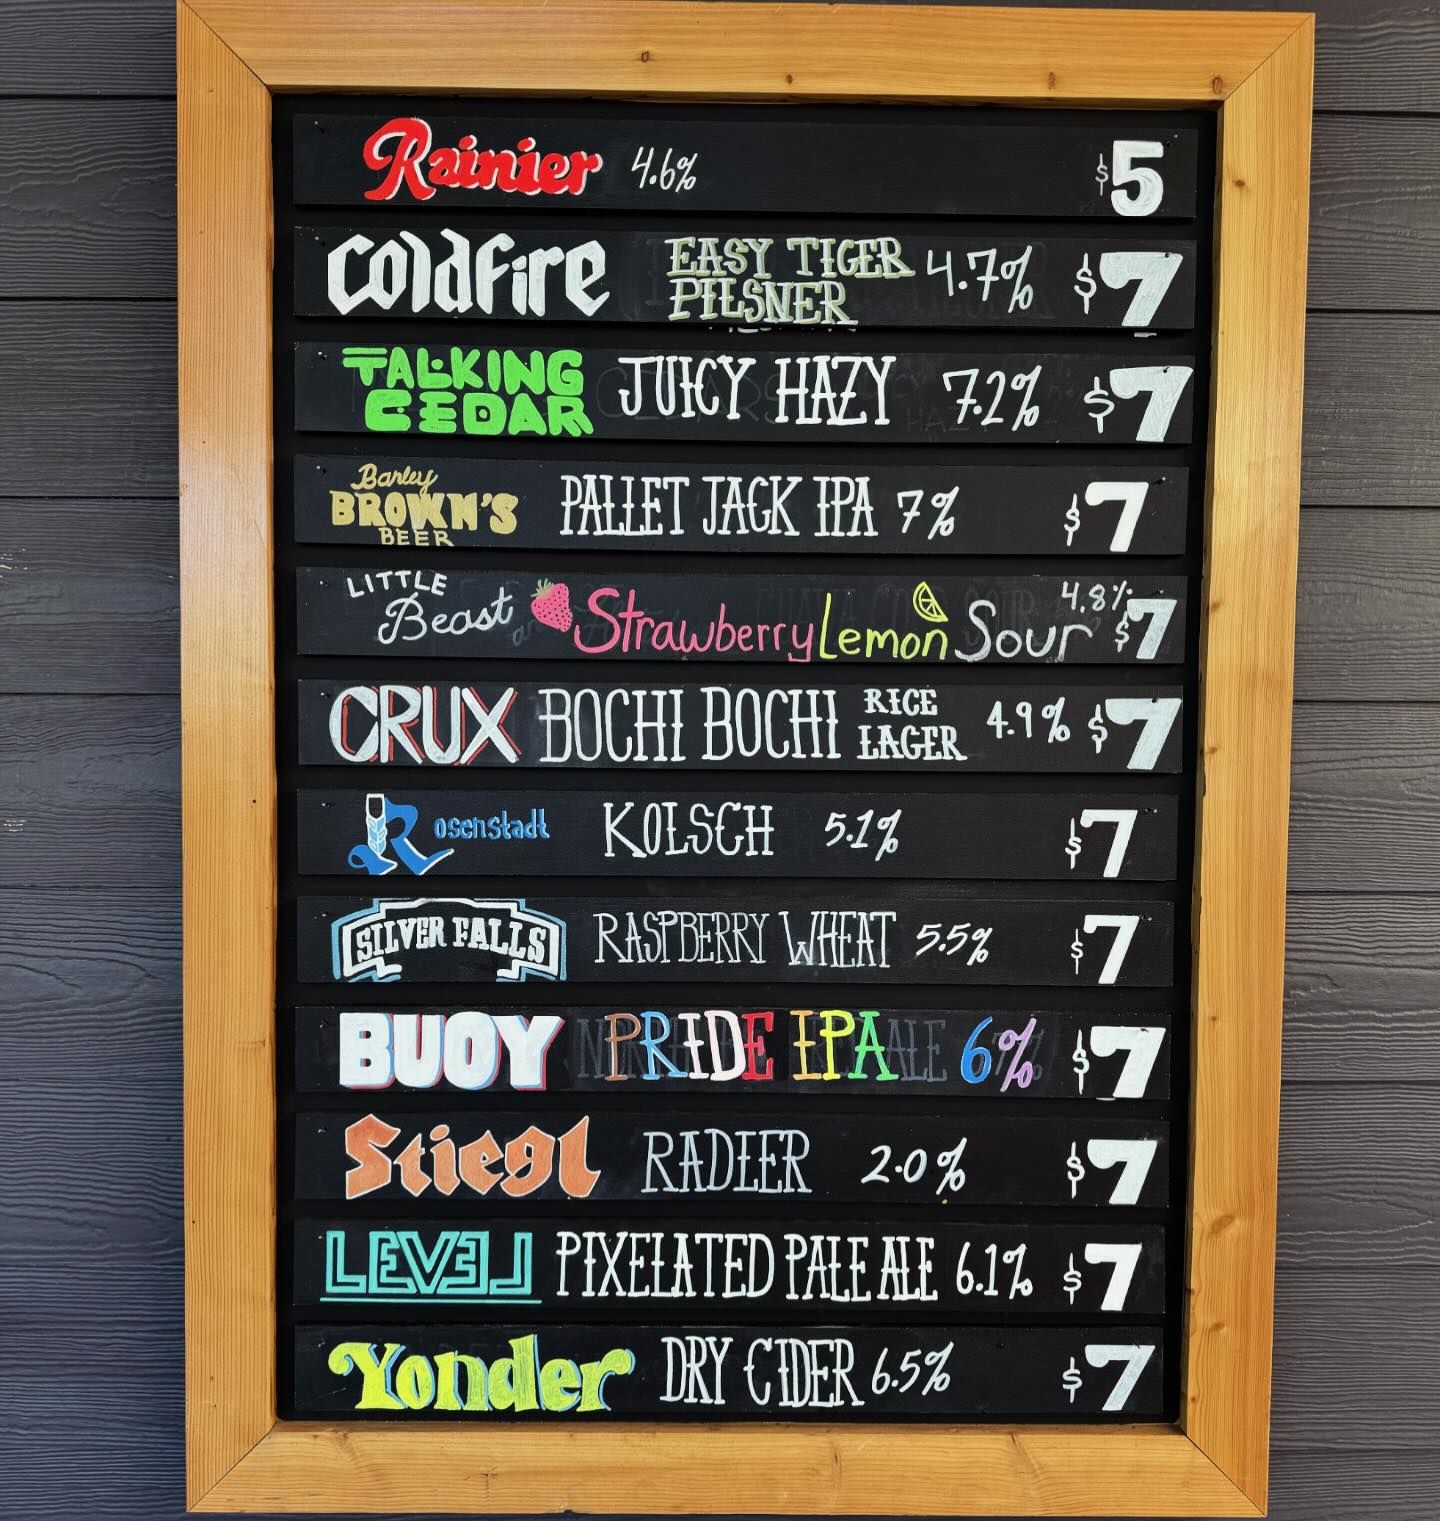 Rainier 4.6% $5
Coldfire EASY TIGER PILSNER 4.7% $7
TALKING CEDAR JUICY HAZY 7.2% $7
Barley BROWN'S BEER PALLET JACK IPA 7% $7
LITTLE Beast Strawberry Lemon Sour 4.8% $7
CRUX BOCHI BOCHI RICE LAGER 4.9% $7
Rosenstadt KOLSCH 5.1% $7
SILVER FALLS RASPBERRY WHEAT 5.5% $7
BUOY PRIDE IPA 6% $7
Stiegl RADLER 2.0% $7
LEVEL PIXELATED PALE ALE 6.1% $7
Yonder DRY CIDER 6.5% $7